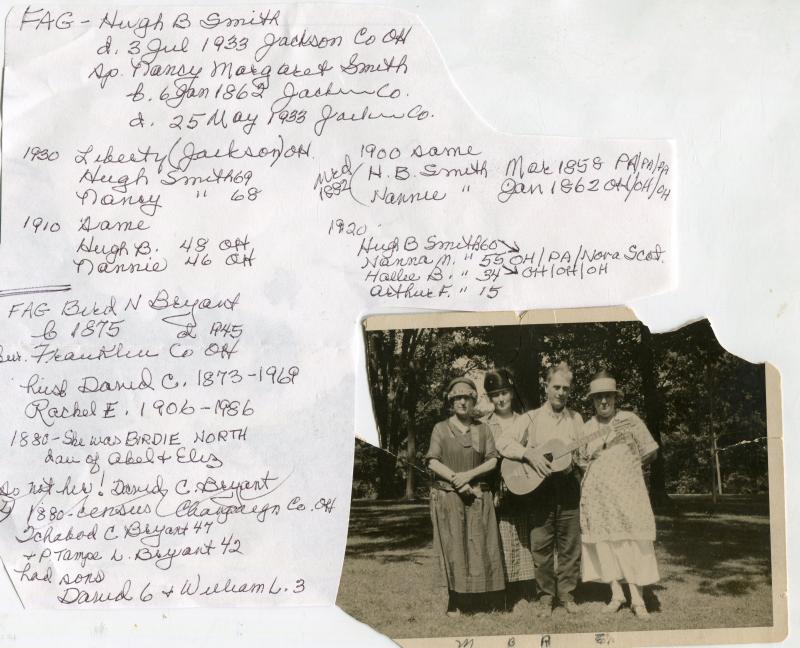 FAG - Hugh B Smith
d. 3 Jul 1933 Jackson Co OH
sp. Nancy Margaret Smith
b. 6 Jan 1862 Jackson Co.
d. 25 May 1933 Jackson Co.
1930 Liberty (Jackson) OH.
Hugh Smith 69
Nancy " 68
1910 Same
Hugh B. 48 OH
Nannie 46 OH
1900 same
Mrd 1882 ( H. B. Smith Mar 1858 PA/PA/PA
Nannie " Jan 1862 OH/OH/OH
1920
Hugh B Smith 60
Nanna M. " 55 OH/PA/Nova Scot.
Hallie B. " 34 OH/OH/OH
Arthur F. " 15
FAG Bird N Bryant
b 1875 d 1945
bur. Franklin Co OH
husb David C. 1873-1969
Rachel E. 1906-1986
1880-She was BIRDIE NORTH
dau of Abel & Eliz
So not her! David C. Bryant
1880-census (Champaign Co. OH
Ichabod C Bryant 47
+ P Tampe L. Bryant 42
had sons
David 6 + William L. 3
M B A